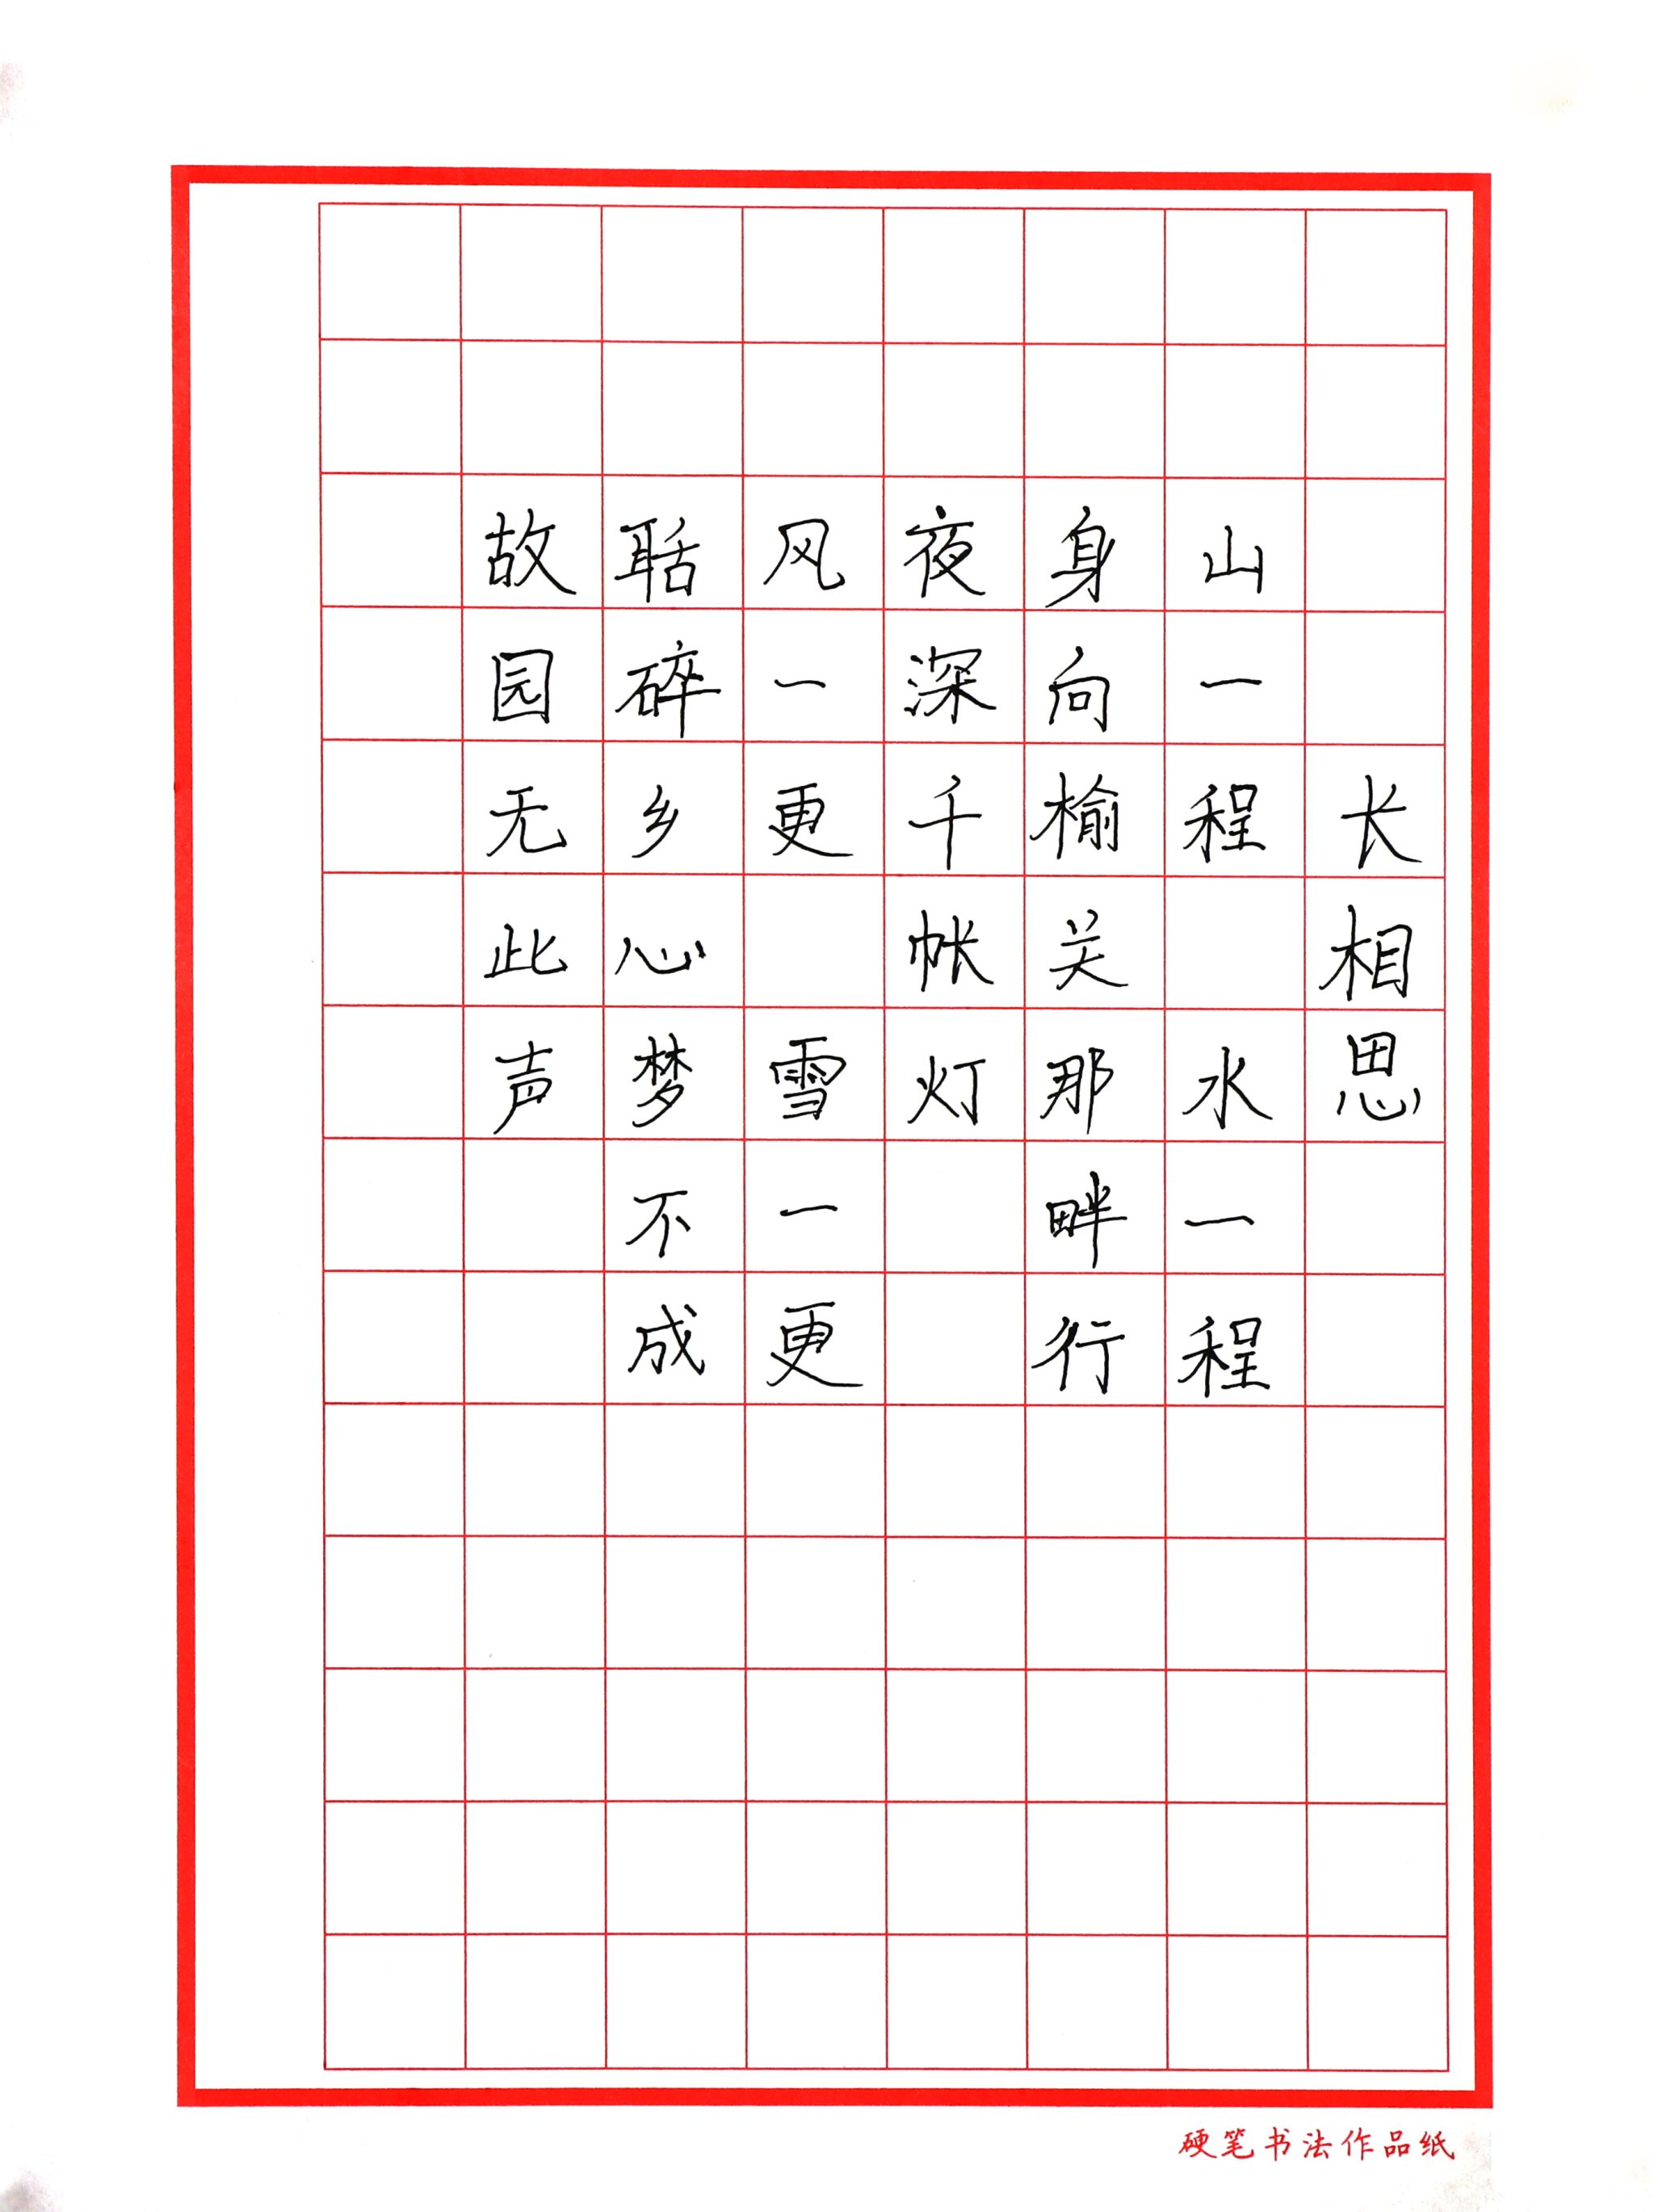 长相思
山一程 水一程
身向榆关那畔行
夜深千帐灯
风一更 雪一更
聒碎乡心梦不成
故园无此声
硬笔书法作品纸